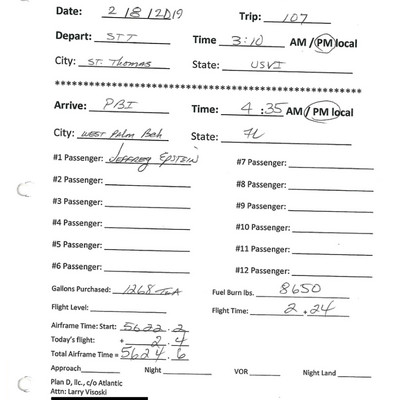 Date: 2/8/2019 Trip: 107
Depart: STT Time 3:10 AM / PM local
City: ST. Thomas State: USVI
************************************************************
Arrive: PBI Time: 4:35 AM / PM local
City: West Palm Bch State: FL
#1 Passenger: Jeffrey Epstein #7 Passenger:
#2 Passenger: #8 Passenger:
#3 Passenger: #9 Passenger:
#4 Passenger: #10 Passenger:
#5 Passenger: #11 Passenger:
#6 Passenger: #12 Passenger:
Gallons Purchased: 1268 Fuel Burn lbs. 8650
Flight Level: Flight Time: 2.24
Airframe Time: Start: 5622.2
Today's flight: + 2.4
Total Airframe Time = 5624.6
Approach Night VOR Night Land
Plan D, llc., c/o Atlantic
Attn: Larry Visoski